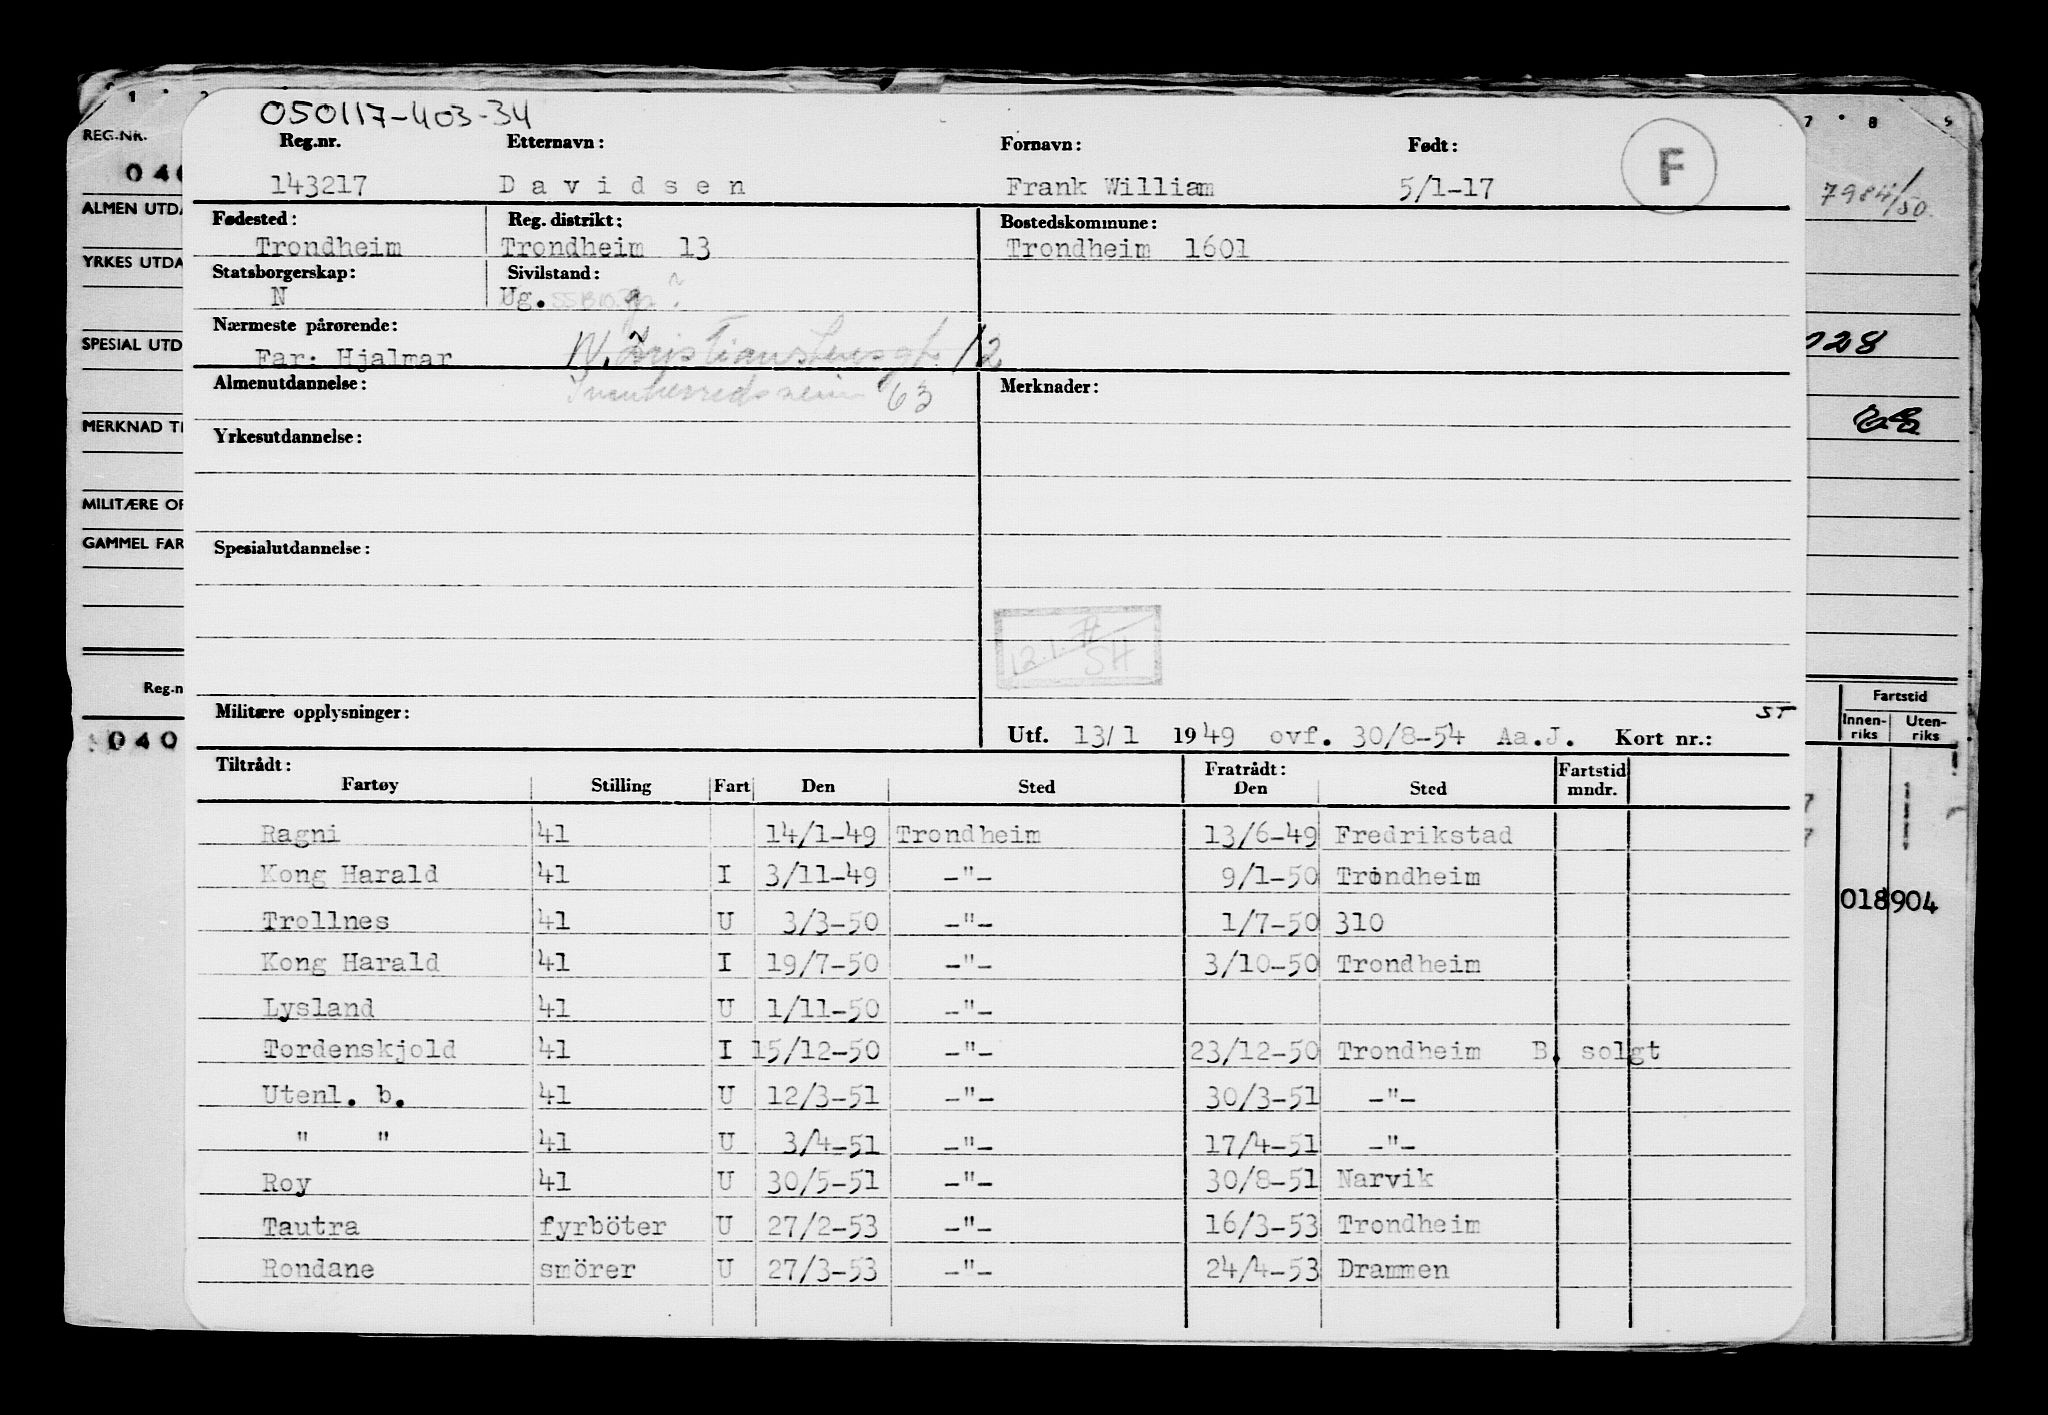 050117-403-34
REG.NR. Reg.nr. Etternavn: Fornavn: Født: F
143217 Davidsen Frank William 5/1-17 7984/50
ALMEN UTDA Fødested: Reg. distrikt: Bostedskommune:
Trondheim Trondheim 13 Trondheim 1601
YRKES UTDA Statsborgerskap: Sivilstand:
N Ug. ?
Nærmeste pårørende:
SPESIAL UTD 028
Far: Hjalmar 12
Almenutdannelse: 63 Merknader:
MERKNAD TI Yrkesutdannelse:
MILITÆRE OP
GAMMEL FAR Spesialutdannelse:
12.1. SH
Reg.n Fartstid
Militære opplysninger: ST Innen- Uten-
riks riks
040 Utf. 13/1 1949 ovf. 30/8-54 Aa.J. Kort nr.:
Tiltrådt: Fratrådt: Fartstid
Fartøy Stilling Fart Den Sted Den Sted mndr.
Ragni 41 14/1-49 Trondheim 13/6-49 Fredrikstad
Kong Harald 41 I 3/11-49 -"- 9/1-50 Trondheim
018904
Trollnes 41 U 3/3-50 -"- 1/7-50 310
Kong Harald 41 I 19/7-50 -"- 3/10-50 Trondheim
Lysland 41 U 1/11-50 -"-
Tordenskjold 41 I 15/12-50 -"- 23/12-50 Trondheim B. solgt
Utenl. b. 41 U 12/3-51 -"- 30/3-51 -"-
" " 41 U 3/4-51 -"- 17/4-51 -"-
Roy 41 U 30/5-51 -"- 30/8-51 Narvik
Tautra fyrböter U 27/2-53 -"- 16/3-53 Trondheim
Rondane smörer U 27/3-53 -"- 24/4-53 Drammen